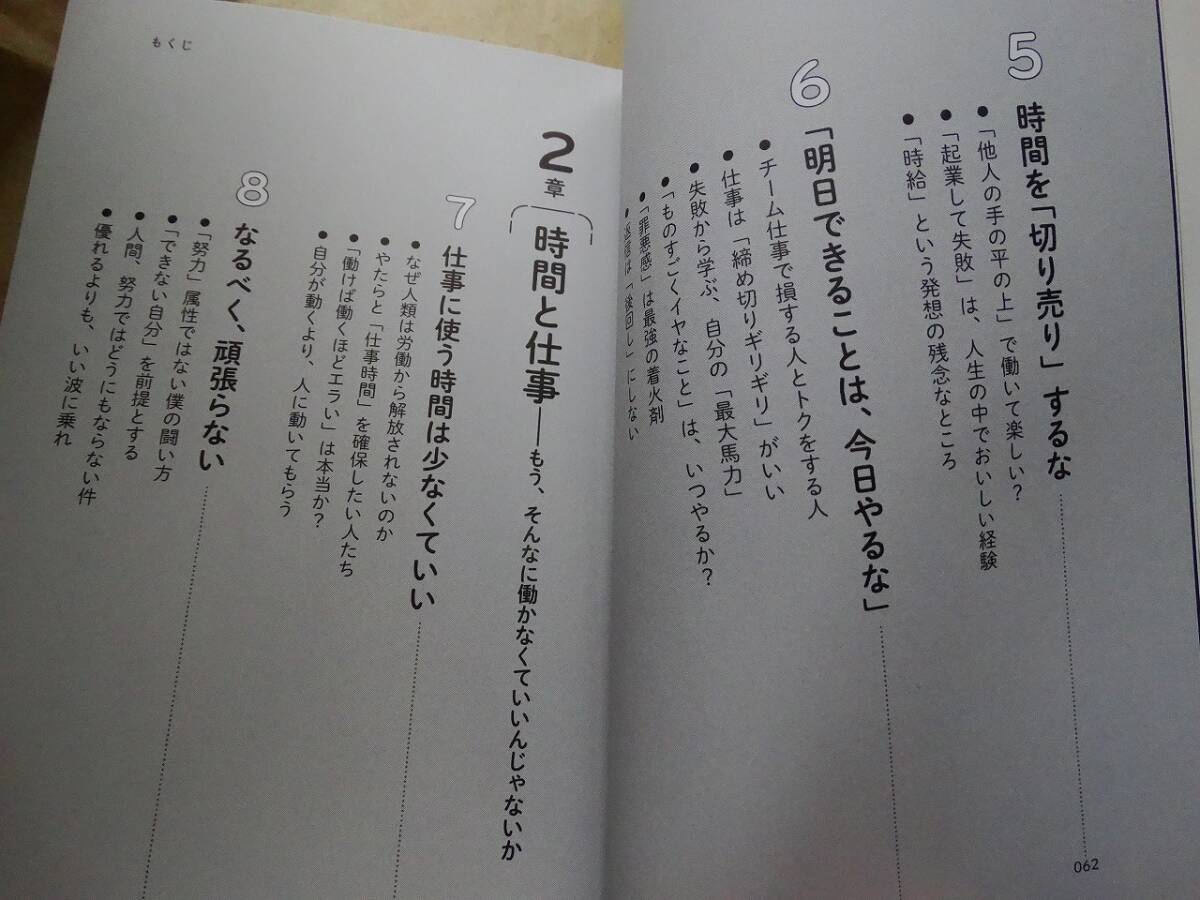 5
時間を「切り売り」するな
●「他人の手の平の上」で働いて楽しい？
●「起業して失敗」は、人生の中でおいしい経験
●「時給」という発想の残念なところ
062
6
「明日できることは、今日やるな」
●チーム仕事で損する人とトクをする人
●仕事は「締め切りギリギリ」がいい
●失敗から学ぶ、自分の「最大馬力」
●「ものすごくイヤなこと」は、いつやるか？
●「罪悪感」は最強の着火剤
●返信は「後回し」にしない
もくじ
2章 時間と仕事――もう、そんなに働かなくていいんじゃないか
7
仕事に使う時間は少なくていい
●なぜ人類は労働から解放されないのか
●やたらと「仕事時間」を確保したい人たち
●「働けば働くほどエラい」は本当か？
●自分が動くより、人に動いてもらう
8
なるべく、頑張らない
●「努力」属性ではない僕の闘い方
●「できない自分」を前提とする
●人間、努力ではどうにもならない件
●優れるよりも、いい波に乗れ